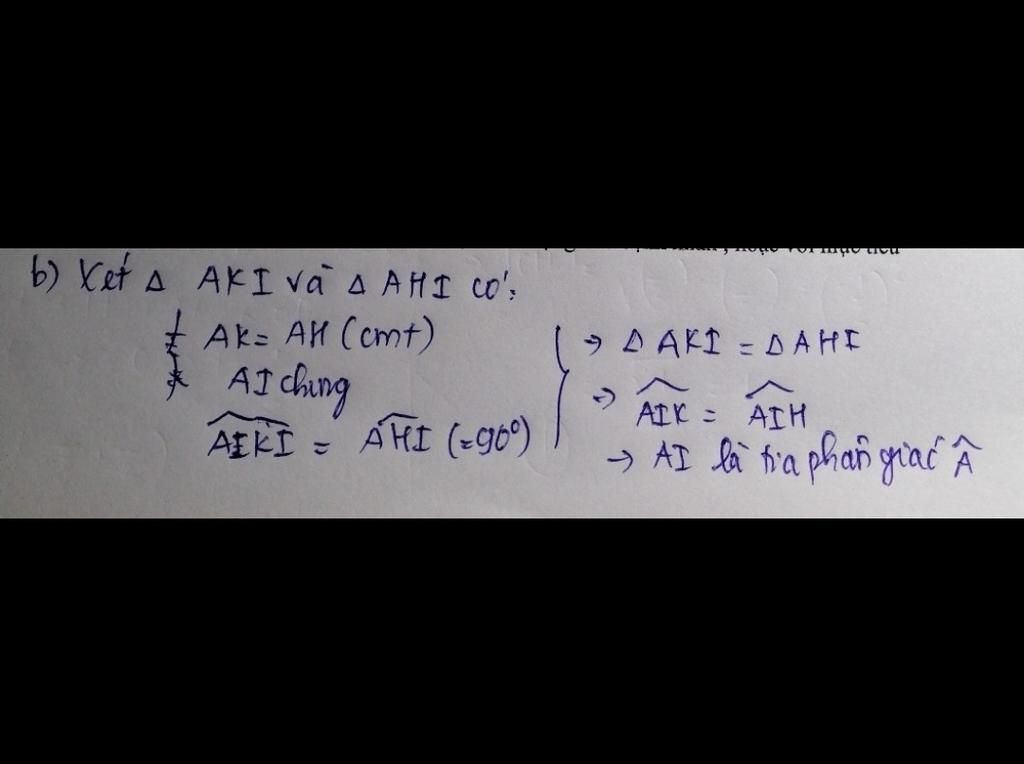 b) Xét Δ AKI và Δ AHI có:
AK = AH (cmt)
AI chung
AIKI = AHI (=90°)
→ Δ AKI = Δ AHI
→ AIK = AIH
→ AI là tia phân giác Â